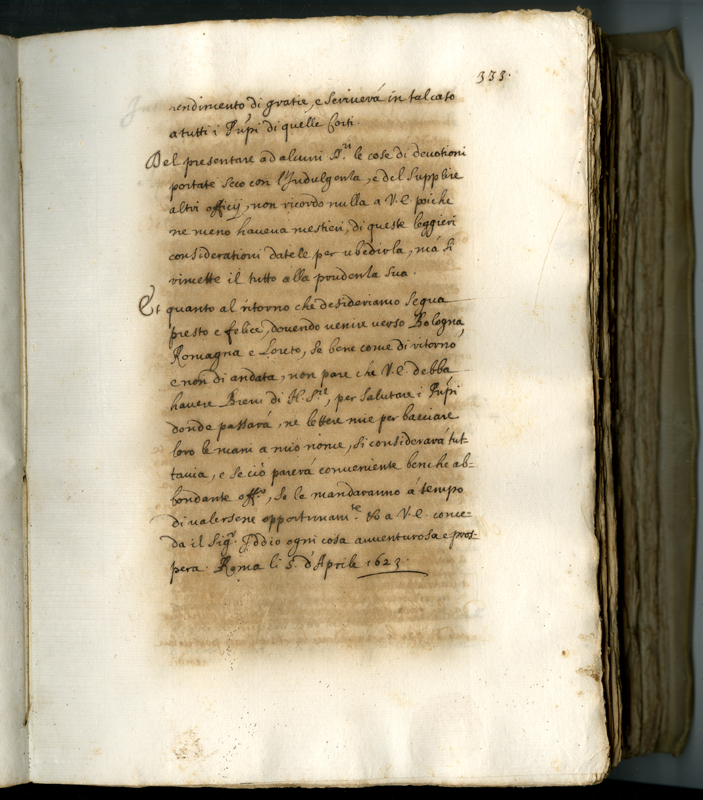 333.
rendimento di gratie, e scriverà in tal caso
a tutti i Pñpi di quelle Corti.
Del presentare ad alcuni P.ri le cose di devotioni
portate seco con l'Indulgenza, e del supplire
altri officij, non ricordo nulla a V.E. poiche
ne meno haveva mestieri, di queste leggieri
considerationi datele per ubedirla, mà si
rimette il tutto alla prudenza sua.
Et quanto al ritorno che desideriamo segua
presto e felice, dovendo venire verso Bologna,
Romagna e Loreto, se bene come di ritorno,
e non di andata, non pare che V.E. debba
havere Brevi di N. S.re, per salutare i Pñpi
donde passarà, ne lettere mie per basciare
loro le mani a mio nome, si considerarà tut-
tavia, e se ciò parerà conveniente benche ab-
bondante off.o, se le mandaranno à tempo
di valersene opportunam.te Et a V.E. conce-
da il Sig.r Iddio ogni cosa avventurosa e pros-
pera. Roma li 5. d'Aprile 1623.